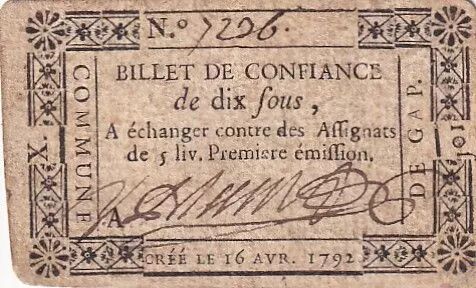 N.º 7226.
BILLET DE CONFIANCE
de dix ſous,
A échanger contre des Aſſignats
de 5 liv. Premiere émiſſion.
A
CRÉÉ LE 16 AVR. 1792
COMMUNE
DE GAP.
X.
10ſ